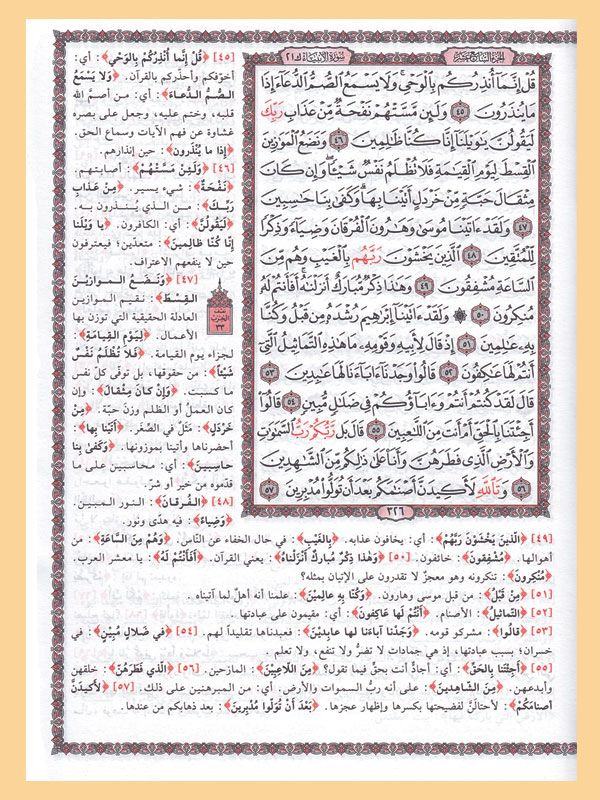 الجزء السابع عشر
سورة الأنبياء ٢١
قُلْ إِنَّمَا أُنذِرُكُم بِالْوَحْيِ وَلَا يَسْمَعُ الصُّمُّ الدُّعَاءَ إِذَا
مَا يُنذَرُونَ ٤٥ وَلَئِن مَّسَّتْهُمْ نَفْحَةٌ مِّنْ عَذَابِ رَبِّكَ
لَيَقُولُنَّ يَٰوَيْلَنَا إِنَّا كُنَّا ظَٰلِمِينَ ٤٦ وَنَضَعُ الْمَوَٰزِينَ
الْقِسْطَ لِيَوْمِ الْقِيَٰمَةِ فَلَا تُظْلَمُ نَفْسٌ شَيْـًٔا وَإِن كَانَ
مِثْقَالَ حَبَّةٍ مِّنْ خَرْدَلٍ أَتَيْنَا بِهَا وَكَفَىٰ بِنَا حَٰسِبِينَ
٤٧ وَلَقَدْ ءَاتَيْنَا مُوسَىٰ وَهَٰرُونَ الْفُرْقَانَ وَضِيَاءً وَذِكْرًا
لِّلْمُتَّقِينَ ٤٨ الَّذِينَ يَخْشَوْنَ رَبَّهُم بِالْغَيْبِ وَهُم مِّنَ
السَّاعَةِ مُشْفِقُونَ ٤٩ وَهَٰذَا ذِكْرٌ مُّبَارَكٌ أَنزَلْنَٰهُ أَفَأَنتُمْ لَهُ
مُنكِرُونَ ٥٠ ۞ وَلَقَدْ ءَاتَيْنَا إِبْرَٰهِيمَ رُشْدَهُ مِن قَبْلُ وَكُنَّا
بِهِ عَٰلِمِينَ ٥١ إِذْ قَالَ لِأَبِيهِ وَقَوْمِهِ مَا هَٰذِهِ التَّمَاثِيلُ الَّتِي
أَنتُمْ لَهَا عَٰكِفُونَ ٥٢ قَالُوا وَجَدْنَا ءَابَاءَنَا لَهَا عَٰبِدِينَ ٥٣
قَالَ لَقَدْ كُنتُمْ أَنتُمْ وَءَابَاؤُكُمْ فِي ضَلَٰلٍ مُّبِينٍ ٥٤ قَالُوا
أَجِئْتَنَا بِالْحَقِّ أَمْ أَنتَ مِنَ اللَّٰعِبِينَ ٥٥ قَالَ بَل رَّبُّكُمْ رَبُّ السَّمَٰوَٰتِ
وَالْأَرْضِ الَّذِي فَطَرَهُنَّ وَأَنَا عَلَىٰ ذَٰلِكُم مِّنَ الشَّٰهِدِينَ
٥٦ وَتَاللَّهِ لَأَكِيدَنَّ أَصْنَٰمَكُم بَعْدَ أَن تُوَلُّوا مُدْبِرِينَ ٥٧
٣٢٦
[٤٥] ﴿قُلْ إِنَّما أُنْذِرُكُمْ بِالْوَحْيِ﴾: أي:
أخوّفكم وأحذّركم بالقرآن. ﴿وَلا يَسْمَعُ
الصُّمُّ الدُّعاءَ﴾: أي: من أصمَّ الله
قلبه، وختم عليه، وجعل على بصره
غشاوة عن فهم الآيات وسماع الحق.
﴿إِذا ما يُنْذَرُونَ﴾: حين إنذارهم.
[٤٦] ﴿وَلَئِنْ مَسَّتْهُمْ﴾: أصابتهم.
﴿نَفْحَةٌ﴾: شيء يسير. ﴿مِنْ عَذابِ
رَبِّكَ﴾: من الذي يُنذرون به.
﴿لَيَقُولُنَّ﴾: أي: الكافرون. ﴿يا وَيْلَنا
إِنَّا كُنَّا ظالِمِينَ﴾: متعدّين؛ فيعترفون
حين لا ينفعهم الاعتراف.
[٤٧] ﴿وَنَضَعُ الْمَوازِينَ
الْقِسْطَ﴾: نقيم الموازين
العادلة الحقيقية التي توزن بها
الأعمال. ﴿لِيَوْمِ الْقِيامَةِ﴾:
نصف
الحزب
٣٣
لجزاء يوم القيامة. ﴿فَلا تُظْلَمُ نَفْسٌ
شَيْئاً﴾: من حقوقها، بل توفّى كلّ نفس
ما كسبت. ﴿وَإِنْ كانَ مِثْقالَ﴾: وإن
كان العملُ أو الظلم وزنَ حبّة. ﴿مِنْ
خَرْدَلٍ﴾: مَثَلٌ في الصِّغَر. ﴿أَتَيْنا بِها﴾:
أحضرناها وأتينا بموزونها. ﴿وَكَفى بِنا
حاسِبِينَ﴾: أي: محاسبين على ما
قدّموه من خير أو شرّ.
[٤٨] ﴿الْفُرْقانَ﴾: النور المبين.
﴿وَضِياءً﴾: فيه هدى ونور.
[٤٩] ﴿الَّذِينَ يَخْشَوْنَ رَبَّهُمْ﴾: أي: يخافون عذابه. ﴿بِالْغَيْبِ﴾: في حال الخفاء عن النّاس. ﴿وَهُمْ مِنَ السَّاعَةِ﴾: من
أهوالها. ﴿مُشْفِقُونَ﴾: خائفون. [٥٠] ﴿وَهذا ذِكْرٌ مُبارَكٌ أَنْزَلْناهُ﴾: يعني القرآن. ﴿أَفَأَنْتُمْ لَهُ﴾: يا معشر العرب.
﴿مُنْكِرُونَ﴾: تنكرونه وهو معجزٌ لا تقدرون على الإتيان بمثله؟
[٥١] ﴿مِنْ قَبْلُ﴾: من قبل موسى وهارون. ﴿وَكُنَّا بِهِ عالِمِينَ﴾: علمنا أنه أهلٌ لما آتيناه.
[٥٢] ﴿التَّماثِيلُ﴾: الأصنام. ﴿أَنْتُمْ لَها عاكِفُونَ﴾: أي: مقيمون على عبادتها.
[٥٣] ﴿قالُوا﴾: مشركو قومه. ﴿وَجَدْنا آباءَنا لَها عابِدِينَ﴾: فعبدناها تقليداً لهم. [٥٤] ﴿فِي ضَلالٍ مُبِينٍ﴾: في
خسران؛ بسبب عبادتها، إذ هي جمادات لا تضرُّ ولا تنفع، ولا تعلم.
[٥٥] ﴿أَجِئْتَنا بِالْحَقِّ﴾: أي: أجادٌّ أنت بحقّ فيما تقول؟ ﴿مِنَ اللَّاعِبِينَ﴾: المازحين. [٥٦] ﴿الَّذِي فَطَرَهُنَّ﴾: خلقهن
وأبدعهن. ﴿مِنَ الشَّاهِدِينَ﴾: على أنه ربُّ السموات والأرض. أي: من المبرهنين على ذلك. [٥٧] ﴿لَأَكِيدَنَّ
أَصْنامَكُمْ﴾: لأحتالَنَّ لفضيحتها بكسرها وإظهار عجزها. ﴿بَعْدَ أَنْ تُوَلُّوا مُدْبِرِينَ﴾: بعد ذهابكم من عندها.